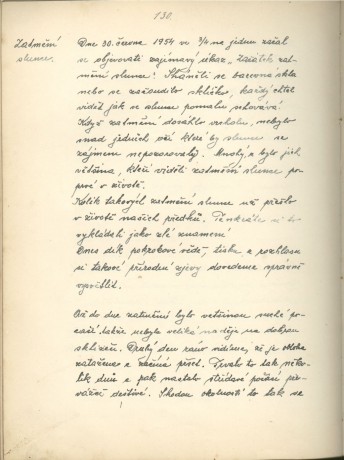 130.
Zatmění
slunce.
Dne 30. června 1954 ve 3/4 na jednu začal
se objevovati zajímavý úkaz „ Začátek zat-
mění slunce! Sháněli se barevná skla
nebo se začaudilo sklíčko, každý chtěl
vidět jak se slunce pomalu schovává
Když zatmění dosáhlo vrcholu, nebylo
snad jedněch očí které by slunce se
zájmem nepozorovaly. Mnohý a bylo jich
většina, kteří viděli zatmění slunce po
prvé v životě.
Kolik takových zatmění slunce už přešlo
v životě našich předků. Tenkráte si to
vykládali jako zlé znamení
Dnes dík pokrokové vědě, tisku a rozhlasu
si takové přírodní zjevy dovedeme správně
vysvětlit.
Až do dne zatmění bylo většinou suché po-
časí takže nebyla veliká naděje na dobrou
sklizeň. Druhý den ráno vidíme, že je obloha
zatažena a začíná pršet. Trvalo to tak něko-
lik dnů a pak nastalo střídavé počasí pře-
vážně deštivé. Shodou okolností to tak se